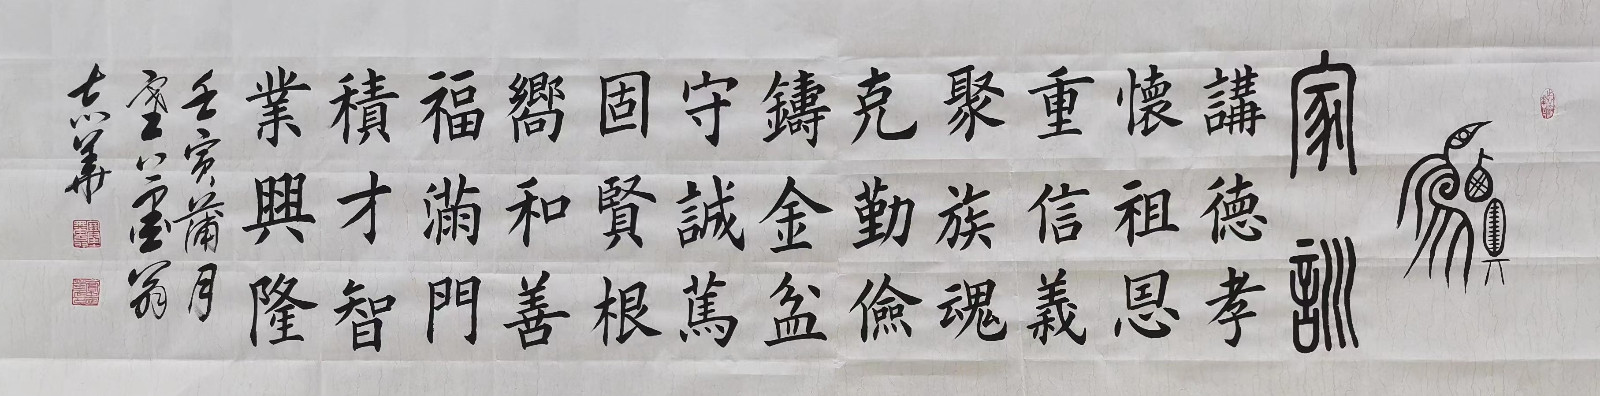 家訓
講德孝
懷祖恩
重信義
聚族魂
克勤儉
鑄金盆
守誠篤
固賢根
嚮和善
福滿門
積才智
業興隆
壬寅蒲月
翁
志華